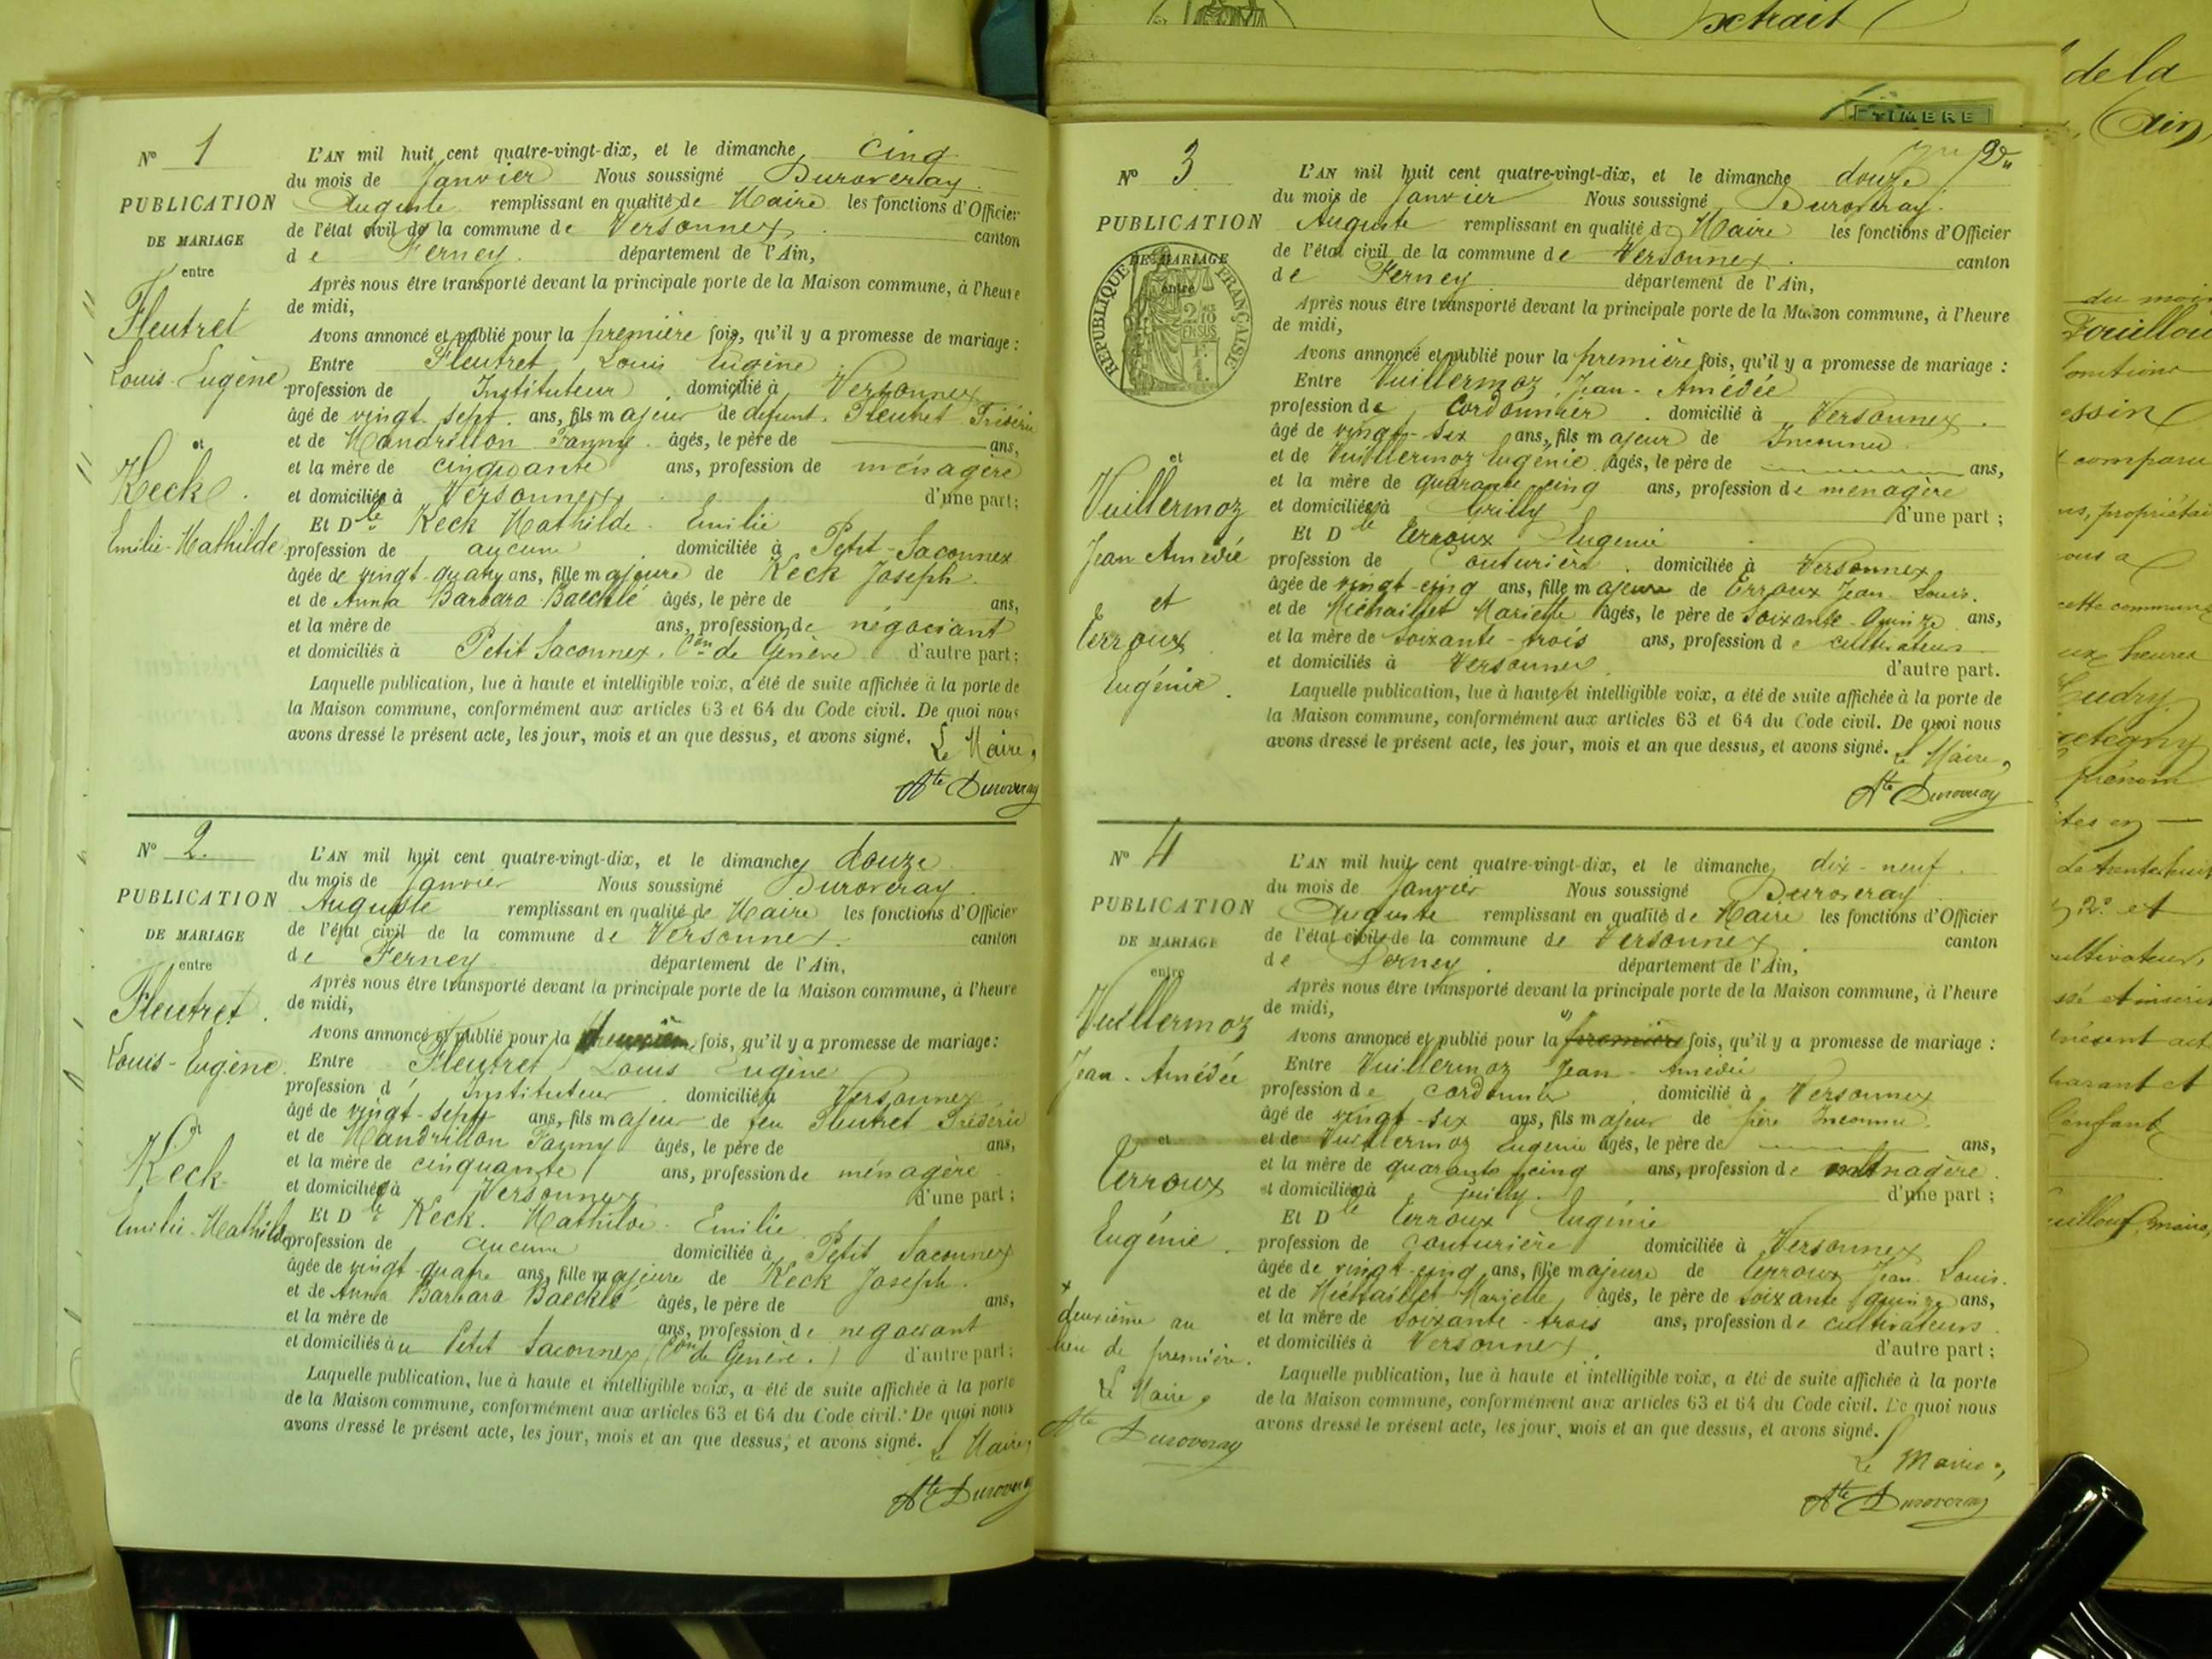 Extrait
de la
Ain,
TIMBRE
N° 1
PUBLICATION
DE MARIAGE
entre
Fleutret
Louis-Eugène
et
Keck
Emilie-Mathilde
L'AN mil huit cent quatre-vingt-dix, et le dimanche cinq
du mois de Janvier Nous soussigné Duroveray
Auguste remplissant en qualité de Maire les fonctions d'Officier
de l'état civil de la commune de Versonnex canton
de Ferney département de l'Ain,
Après nous être transporté devant la principale porte de la Maison commune, à l'heure
de midi,
Avons annoncé et publié pour la première fois, qu'il y a promesse de mariage :
Entre Fleutret Louis Eugène
profession de Instituteur domicilié à Versonnex
âgé de vingt-sept ans, fils majeur de défunt Fleutret Frédéric
et de Mandrillon Fanny âgés, le père de ans,
et la mère de cinquante ans, profession de ménagère
et domiciliée à Versonnex d'une part ;
Et Dlle Keck Mathilde Emilie
profession de aucune domiciliée à Petit-Saconnex
âgée de vingt-quatre ans, fille majeure de Keck Joseph
et de Anna Barbara Baechlé âgés, le père de ans,
et la mère de ans, profession de négociant
et domiciliés à Petit Saconnex, Con de Genève d'autre part ;
Laquelle publication, lue à haute et intelligible voix, a été de suite affichée à la porte de
la Maison commune, conformément aux articles 63 et 64 du Code civil. De quoi nous
avons dressé le présent acte, les jour, mois et an que dessus, et avons signé.
Le Maire,
Ate Duroveray
N° 2
PUBLICATION
DE MARIAGE
entre
Fleutret
Louis-Eugène
et
Keck
Emilie-Mathilde
L'AN mil huit cent quatre-vingt-dix, et le dimanche douze
du mois de Janvier Nous soussigné Duroveray
Auguste remplissant en qualité de Maire les fonctions d'Officier
de l'état civil de la commune de Versonnex canton
de Ferney département de l'Ain,
Après nous être transporté devant la principale porte de la Maison commune, à l'heure
de midi,
Avons annoncé et publié pour la deuxième fois, qu'il y a promesse de mariage :
Entre Fleutret Louis Eugène
profession d' Instituteur domicilié à Versonnex
âgé de vingt-sept ans, fils majeur de feu Fleutret Frédéric
et de Mandrillon Fanny âgés, le père de ans,
et la mère de cinquante ans, profession de ménagère
et domiciliée à Versonnex d'une part ;
Et Dlle Keck Mathilde Emilie
profession de aucune domiciliée à Petit Saconnex
âgée de vingt-quatre ans, fille majeure de Keck Joseph
et de Anna Barbara Baechlé âgés, le père de ans,
et la mère de ans, profession de négociant
et domiciliés au Petit Saconnex (Con de Genève.) d'autre part ;
Laquelle publication, lue à haute et intelligible voix, a été de suite affichée à la porte
de la Maison commune, conformément aux articles 63 et 64 du Code civil. De quoi nous
avons dressé le présent acte, les jour, mois et an que dessus, et avons signé.
Le Maire,
Ate Duroveray
N° 3
PUBLICATION
DE MARIAGE
entre
RÉPUBLIQUE FRANÇAISE
et
Vuillermoz
Jean Amédée
et
Erroux
Eugénie
L'AN mil huit cent quatre-vingt-dix, et le dimanche douze
du mois de Janvier Nous soussigné Duroveray
Auguste remplissant en qualité de Maire les fonctions d'Officier
de l'état civil de la commune de Versonnex canton
de Ferney département de l'Ain,
Après nous être transporté devant la principale porte de la Maison commune, à l'heure
de midi,
Avons annoncé et publié pour la première fois, qu'il y a promesse de mariage :
Entre Vuillermoz Jean-Amédée
profession de Cordonnier domicilié à Versonnex
âgé de vingt-six ans, fils majeur de Inconnu
et de Vuillermoz Eugénie âgés, le père de ans,
et la mère de quarante-cinq ans, profession de ménagère
et domiciliée à Grilly d'une part ;
Et Dlle Erroux Eugénie
profession de Couturière domiciliée à Versonnex
âgée de vingt-cinq ans, fille majeure de Erroux Jean Louis
et de Michaillet Mariette âgés, le père de soixante-quinze ans,
et la mère de soixante-trois ans, profession de cultivateurs
et domiciliés à Versonnex d'autre part.
Laquelle publication, lue à haute et intelligible voix, a été de suite affichée à la porte de
la Maison commune, conformément aux articles 63 et 64 du Code civil. De quoi nous
avons dressé le présent acte, les jour, mois et an que dessus, et avons signé.
Le Maire,
Ate Duroveray
N° 4
PUBLICATION
DE MARIAGE
entre
Vuillermoz
Jean-Amédée
et
Erroux
Eugénie
deuxième au
lieu de première.
Le Maire,
Ate Duroveray
L'AN mil huit cent quatre-vingt-dix, et le dimanche dix-neuf
du mois de Janvier Nous soussigné Duroveray
Auguste remplissant en qualité de Maire les fonctions d'Officier
de l'état civil de la commune de Versonnex canton
de Ferney département de l'Ain,
Après nous être transporté devant la principale porte de la Maison commune, à l'heure
de midi,
Avons annoncé et publié pour la première fois, qu'il y a promesse de mariage :
Entre Vuillermoz Jean-Amédée
profession de cordonnier domicilié à Versonnex
âgé de vingt-six ans, fils majeur de père Inconnu
et de Vuillermoz Eugénie âgés, le père de ans,
et la mère de quarante-cinq ans, profession de ménagère
et domiciliée à Grilly d'une part ;
Et Dlle Erroux Eugénie
profession de Couturière domiciliée à Versonnex
âgée de vingt-cinq ans, fille majeure de Erroux Jean Louis
et de Michaillet Mariette âgés, le père de soixante quinze ans,
et la mère de soixante-trois ans, profession de cultivateurs
et domiciliés à Versonnex d'autre part ;
Laquelle publication, lue à haute et intelligible voix, a été de suite affichée à la porte
de la Maison commune, conformément aux articles 63 et 64 du Code civil. De quoi nous
avons dressé le présent acte, les jour, mois et an que dessus, et avons signé.
Le Maire,
Ate Duroveray
du mois
comparu
propriétai
cette commune
heures
prénom
et
cultivateur,
présent act
l'enfant
maire,